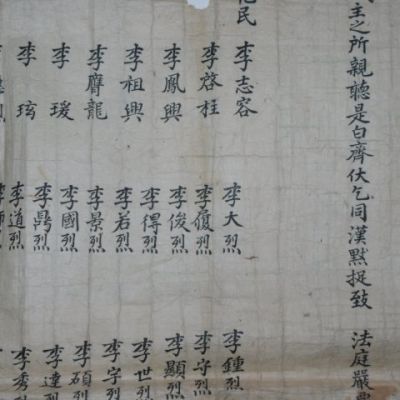 主之所親聽是白齊伏乞同漢黙捉致 法庭嚴
民
李志容
李啓柱
李鳳興
李祖興
李膺龍
李瑗
李玹
李大烈
李履烈
李俊烈
李得烈
李若烈
李景烈
李國烈
李鼎烈
李道烈
李鍾烈
李守烈
李顯烈
李世烈
李字烈
李碩烈
李達烈
李秀烈